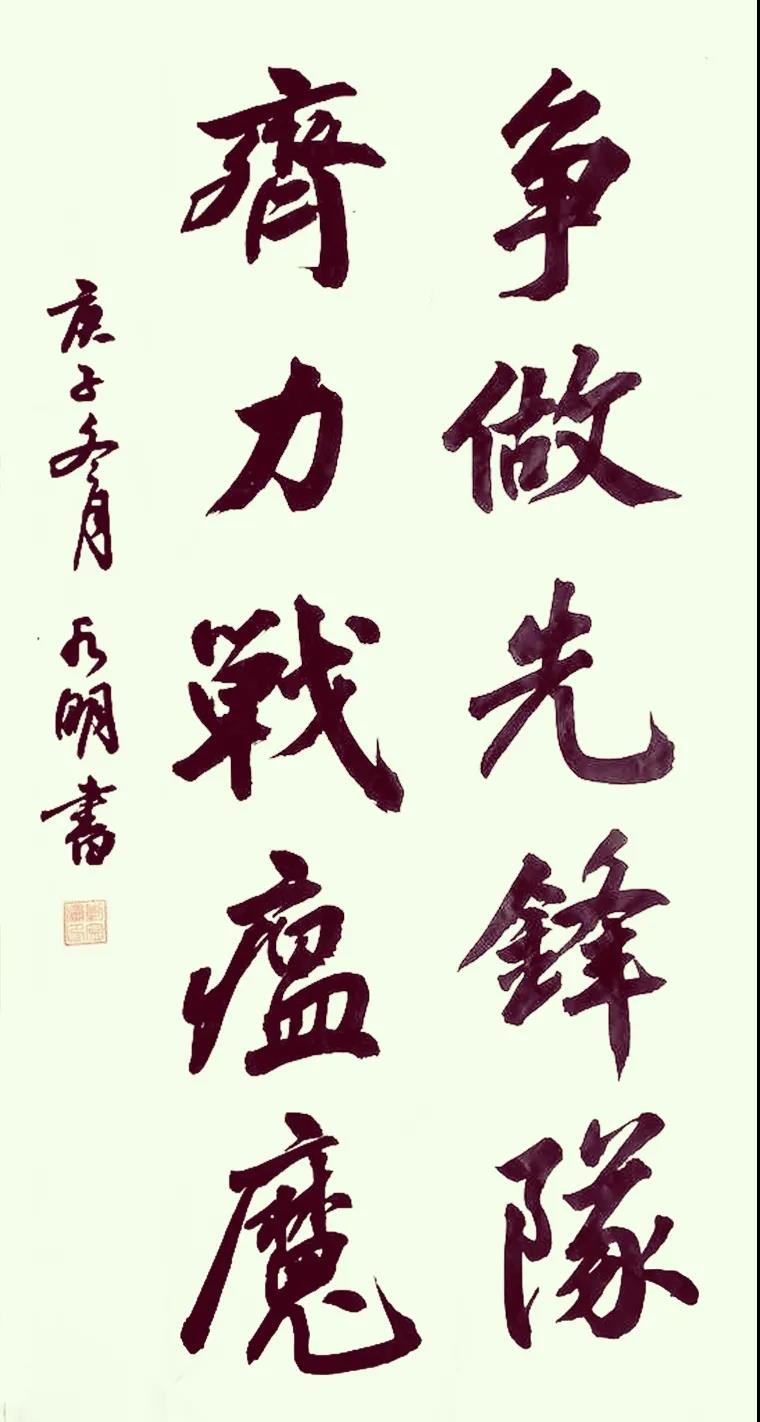 争做先鋒隊
齊力戰瘟魔
庚子冬月 明書